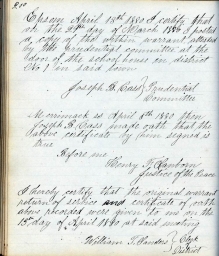 Epsom April 15th 1880 I certify that
on the 29th day of March 1880 I posted
a copy of the within warrant attested
by the Prudential Committee at the
door of the school house on district
No 1 in said town
Joseph B. Cass } Prudential
Committee
Merrimack ss April 15th 1880 then
Joseph B. Cass made oath that the
above certificate by him signed is
true
Before me
Henry F. Sanborn
Justice of the Peace
I hereby certify that the original warrant
return of service and certificate of oath
above recorded were given to me on the
15th day of April 1880 at said meeting
William T. Sanders } Clerk
District